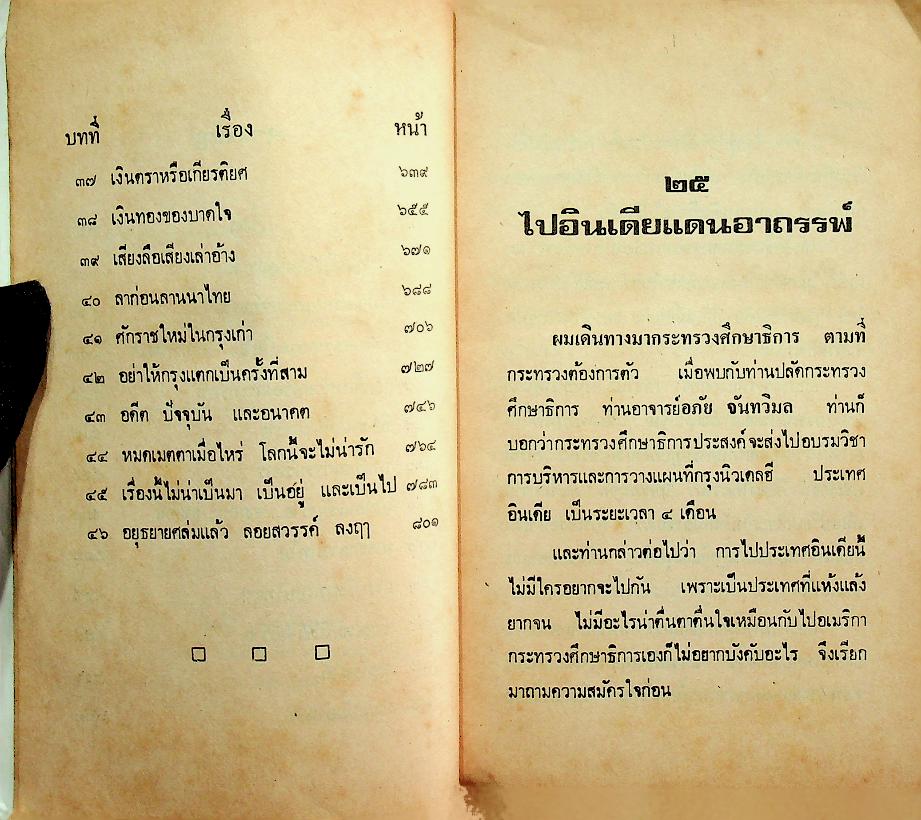 บทที่ เรื่อง หน้า
๓๗ เงินตราหรือเกียรติยศ ๖๓๙
๓๘ เงินทองของบาดใจ ๖๕๕
๓๙ เสียงลือเสียงเล่าอ้าง ๖๗๑
๔๐ ลาก่อนลานนาไทย ๖๘๘
๔๑ ศักราชใหม่ในกรุงเก่า ๗๐๖
๔๒ อย่าให้กรุงแตกเป็นครั้งที่สาม ๗๒๗
๔๓ อดีต ปัจจุบัน และอนาคต ๗๔๖
๔๔ หมดเมตตาเมื่อไหร่ โลกนี้จะไม่น่ารัก ๗๖๔
๔๕ เรื่องนี้ไม่น่าเป็นมา เป็นอยู่ และเป็นไป ๗๘๓
๔๖ อยุธยายศล่มแล้ว ลอยสวรรค์ ลงฤๅ ๘๐๑
๒๕
ไปอินเดียแดนอาถรรพ์
ผมเดินทางมากระทรวงศึกษาธิการ ตามที่
กระทรวงต้องการตัว เมื่อพบกับท่านปลัดกระทรวง
ศึกษาธิการ ท่านอาจารย์อภัย จันทวิมล ท่านก็
บอกว่ากระทรวงศึกษาธิการประสงค์จะส่งไปอบรมวิชา
การบริหารและการวางแผนที่กรุงนิวเดลฮี ประเทศ
อินเดีย เป็นระยะเวลา ๔ เดือน
และท่านกล่าวต่อไปว่า การไปประเทศอินเดียนี้
ไม่มีใครอยากจะไปกัน เพราะเป็นประเทศที่แห้งแล้ง
ยากจน ไม่มีอะไรน่าตื่นตาตื่นใจเหมือนกับไปอเมริกา
กระทรวงศึกษาธิการเองก็ไม่อยากบังคับอะไร จึงเรียก
มาถามความสมัครใจก่อน